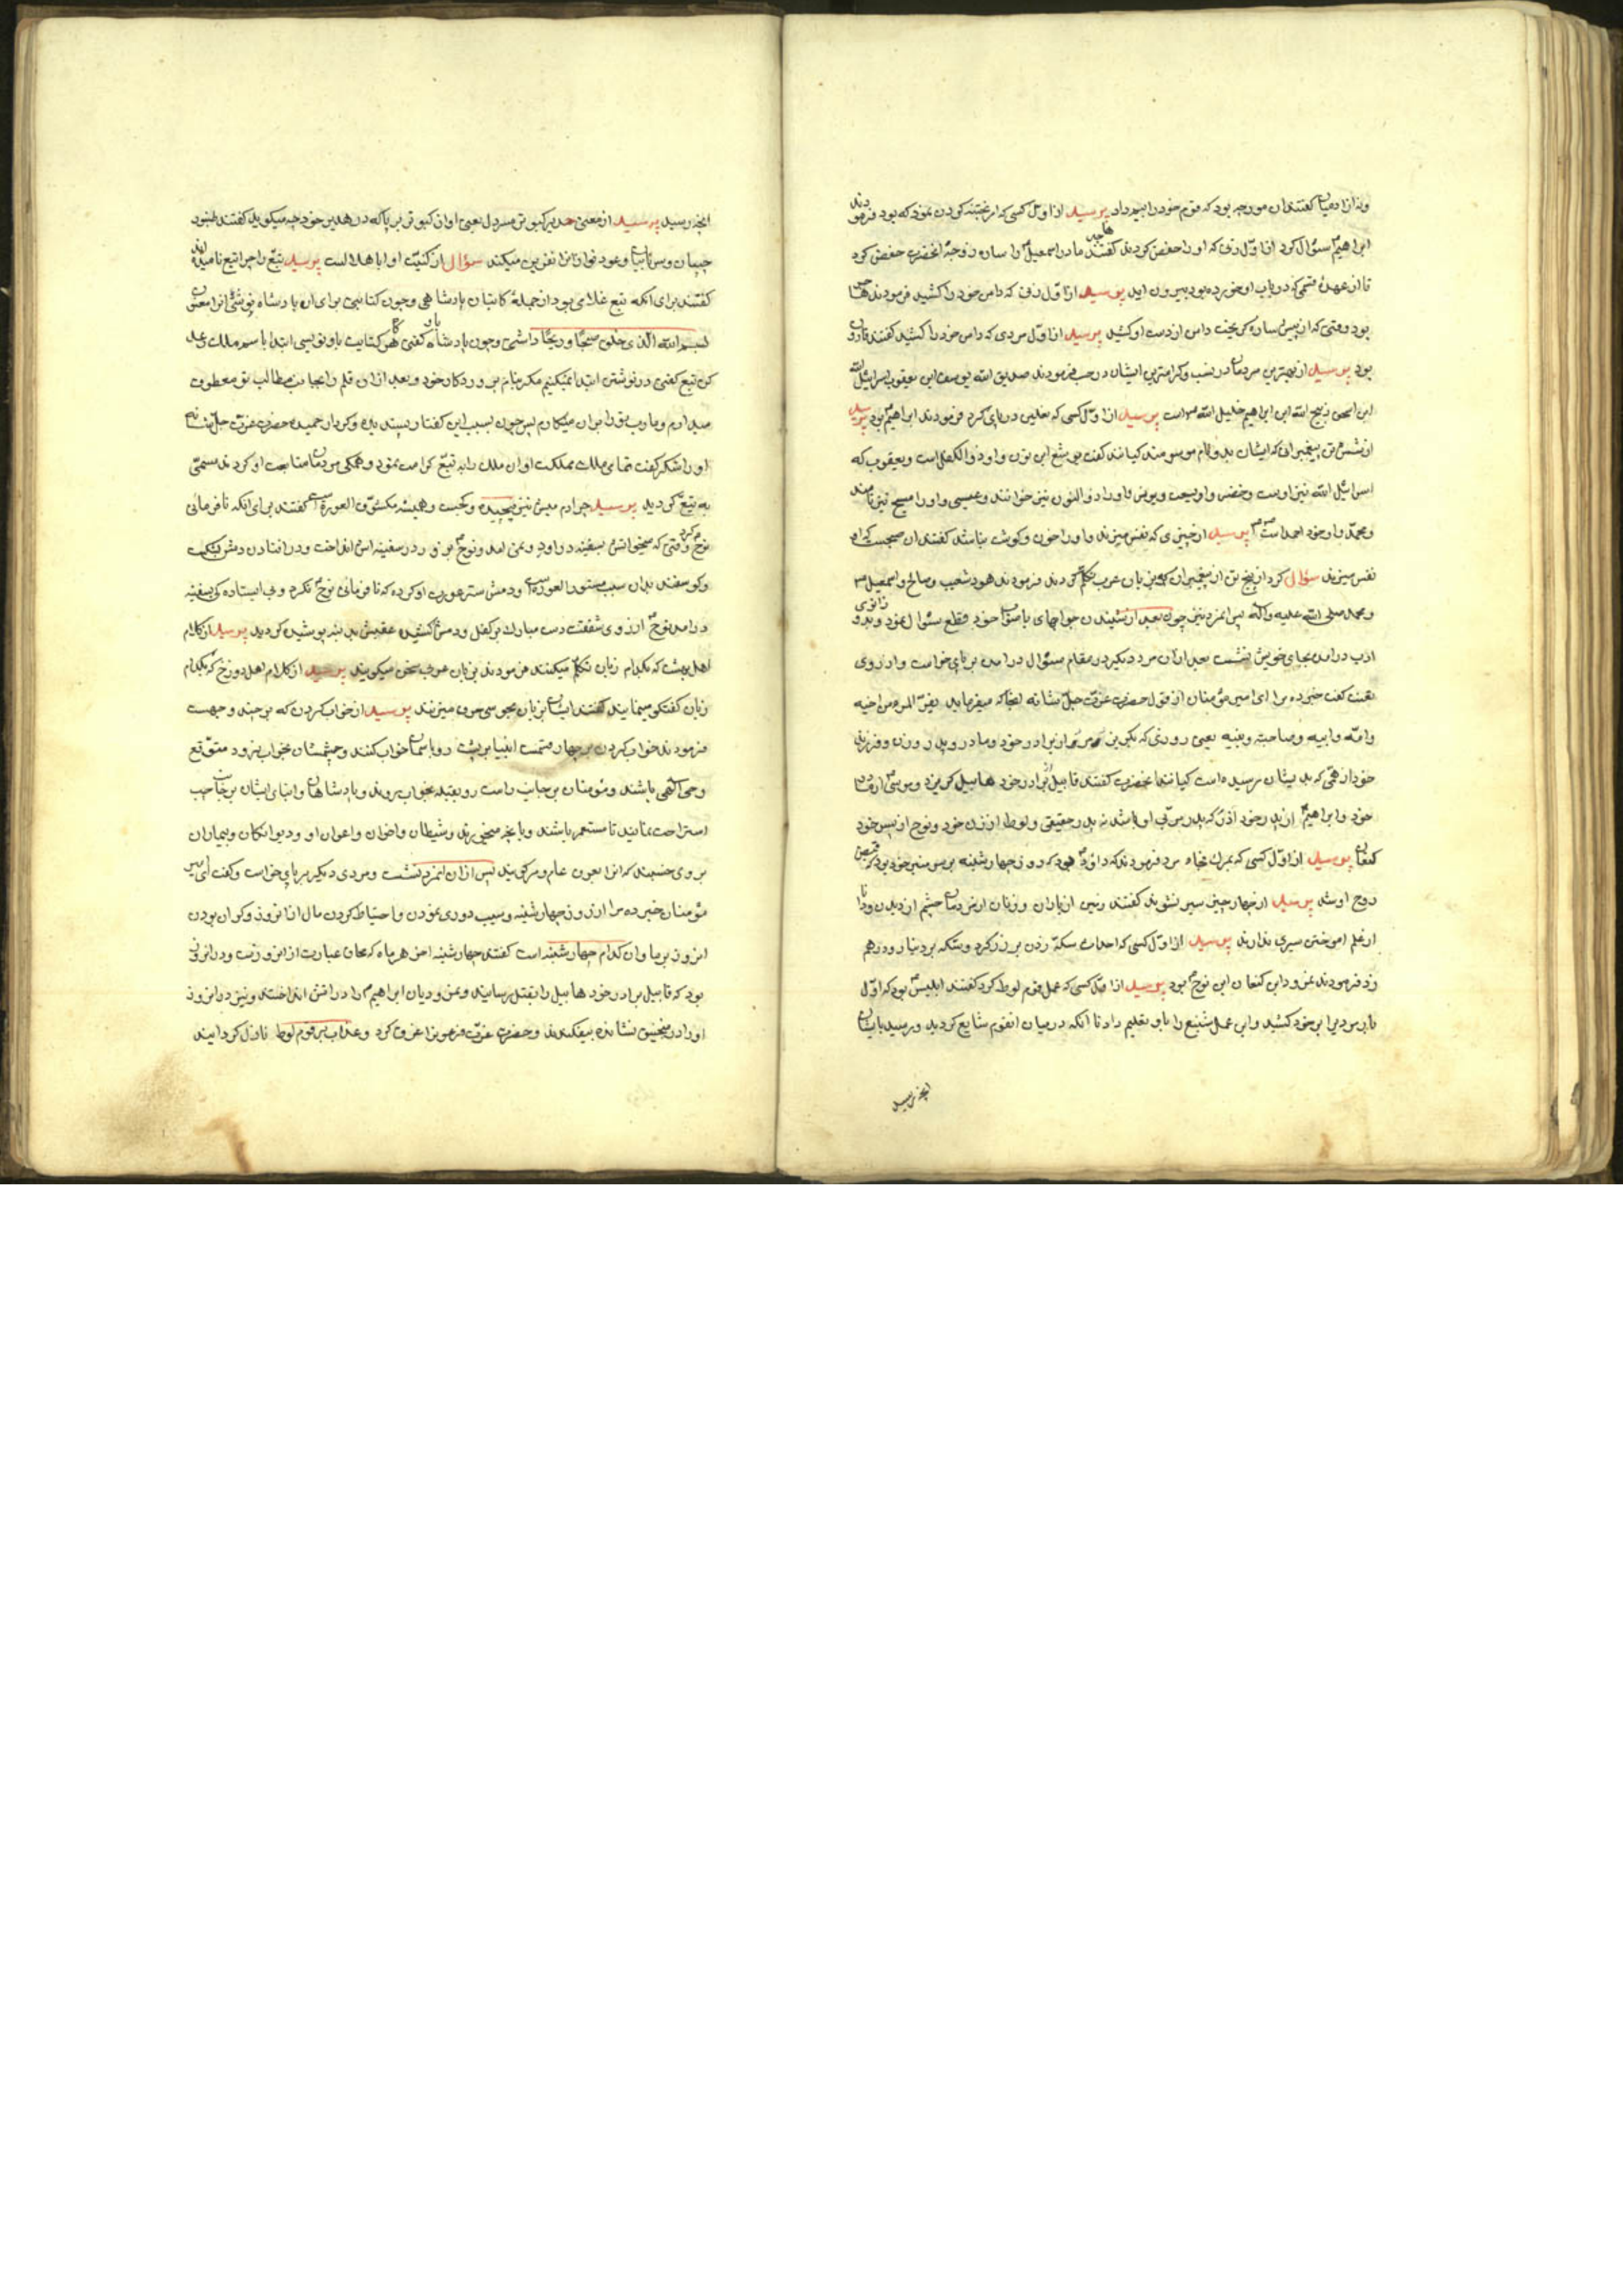 و نه از ادمیان گفتند ان مورچه بود که قوم خود را بیم داد پرسید از اول کسی که امر بختنه کردن نمود که بود فرمودند
ابراهیم سؤال کرد از اول زنی که او را خفض کردند گفتند هاجر مادر اسمعیل که او را ساره زوجهٔ انحضرت خفض کرد
تا از عهدهٔ قسمی که در باب او خورده بود بیرون اید پرسید از اول زنی که دامن خود را کشید فرمودند هاجر
بود وقتی که از پیش ساره گریخت دامن از دست او کشید پرسید از اول مردی که دامن خود را کشید گفتند قارون
بود پرسید از بهترین مردمان در نسب و کرامترین ایشان در حسب فرمودند صدیق الله یوسف ابن یعقوب اسرائیل الله
ابن اسحق ذبیح الله ابن ابراهیم خلیل الله است پرسید از اول کسی که نعلین در پای کرد فرمودند ابراهیم بود پرسید
از شش تن پیغمبرانی که ایشان بدو نام موسومند کیانند گفت یوشع ابن نون و او ذوالکفل است و یعقوب که
اسرائیل الله نیز اوست و خضر و او یسع و یونس و او را ذوالنون نیز خوانند و عیسی و او را مسیح نیز نامند
و محمد و او خود احمد است پرسید از چیزی که نفس میزند و او را خون و گوشت نباشد گفتند ان صبحست که او
نفس میزند سؤال کرد از پنج تن از پیغمبران که بزبان عرب تکلم کردند فرمودند هود شعیب و صالح و اسمعیل
و محمد صلی الله علیه و اله پس انمرد نیز چون بعد از شنیدن جوابهای با صواب خود قطع سئوال نمود و بدو زانوی
ادب درامده بجای خویش نشست بعد از ان مرد دیگر در مقام سئوال درامده بر پای خواست و از روی
تعنت گفت خبر ده مرا ای امیر مؤمنان از قول حضرت عزت جل شانه انجا که میفرماید یفر المرء من اخیه
و امه و ابیه و صاحبته و بنیه یعنی روزی که بگریزد مرد از برادر خود و مادر و پدر و زن و فرزند
خود از همی که بدیشان رسیده است کیانند انحضرت گفتند قابیل از برادر خود هابیل گریزد و موسی از مادر
خود و ابراهیم از پدر خود اذر که پدر مربی او باشد نه پدر حقیقی و لوط از زن خود و نوح از پسر خود
کنعان پرسید از اول کسی که بمرک فجاه مرد فرمودند که داود بود که روز چهارشنبه بر سر منبر خود بود که قبض
روح او شد پرسید از چهار چیز سیر نشوند گفتند زمین از باران و زنان از مردمان چشم از دیدن و دانا
از علم اموختن سیری ندارند پرسید از اول کسی که احداث سکه زدن بر زر کرد و سکه بر دینار و درهم
زد فرمودند نمرود ابن کنعان ابن نوح بود پرسید از اول کسی که عمل قوم لوط کرد گفتند ابلیس بود که اول
بار مرد برا بر خود کشید و این عمل شنیع را باو تعلیم داد تا انکه در میان انقوم شایع گردید و رسید بایشان
انچه رسید
انچه رسید پرسید از معنی هدیر کبوتر یعنی اواز کبوتر بر پا که در هدیر خود چه میگوید گفتند طنبور
چیان و سرنایان و عود نوازانرا نفرین میکند سؤال از کنیت او ابا هلالست پرسید تبع را چرا تبع نامیدند
گفتند برای انکه تبع غلامی بود از جملهٔ کاتبان پادشاهی و چون کتابتی برای ان پادشاه نوشتی انرا معنون
بسم الله الذی خلق صبحا و ریحا داشتی و چون پادشاه باو گفتی که هر کتابت باو نویسی ابتدا باسم ملک رعد
کن تبع گفتی در نوشتن ابتدا نمیکنیم مگر بنام پروردکار خود و بعد از ان قلم را بجانب مطالب تو معطوف
میدارم و مارب تو را بر ان مینکارم پس چون بسبب این گفتار پسندیده و کردار حمیده حضرت عزت جل شانه
او را شکر گفت تمامی ملک مملکت او ان ملک را به تبع کرامت نمود و همگی مردمان متابعت او کردند مسمی
به تبع گردید پرسید چرا دم میش نیز پیچیده و نجست و همیشه مکشوف العورة است گفتند برای انکه نافرمانی
نوح کرد وقتی که میخواستش بسفینه دراورد و نمی امد و نوح بزور در سفینه اش انداخت و در افتادن دمش بشکست
و گوسفند بدان سبب مستور العورة است و دمش ستر عورت او کرده که نافرمانی نوح نکرد و بی ایستادگی بسفینه
درامد نوح از روی شفقت دست مبارک بر کفل و دمش کشیده عقبش بدنبه پوشیده گردید پرسید از کلام
اهل بهشت که بکدام زبان تکلم میکنند فرمودند بزبان عربی سخن میگویند پرسید از کلام اهل دوزخ که بکدام
زبان گفتگو مینمایند گفتند ایشان بزبان مجوسی حرف میزنند پرسید از خواب کردن که بر چند وجهست
فرمودند خواب کردن بر چهار قسمت انبیا بر پشت رو باسمان خواب کنند و چشمشان بخواب نرود متوقع
وحی الهی باشند و مؤمنان بر جانب راست رو بقبله بخواب روند و پادشاهان و ابنای ایشان بر جانب چپ
استراحت نمایند تا مستمر باشند و بانچه میخورند و شیطان و اخوان و اعوان او و دیوانکان و بیماران
بر روی خسبند که انرا بعرف عام دمر گویند پس از ان انمرد نشست و مردی دیگر بر پای خواست و گفت ای امیر
مؤمنان خبر ده مرا از روز چهارشنبه و سبب دوری نمودن و احتیاط کردن مال از انروز و گران بودن
انروز بر ما و ان کدام چهارشنبه است گفتند چهارشنبه اخر هر ماه که محاق عبارت از انروزست و در انروز
بود که قابیل برادر خود هابیل را بقتل رسانید و نمرودیان ابراهیم را در اتش انداختند و نیز در انروز
او را در منجنیق نشانده بیفکندند و حضرت عزت فرعونرا غرق کرد و عذاب بر قوم لوط نازل گردانید